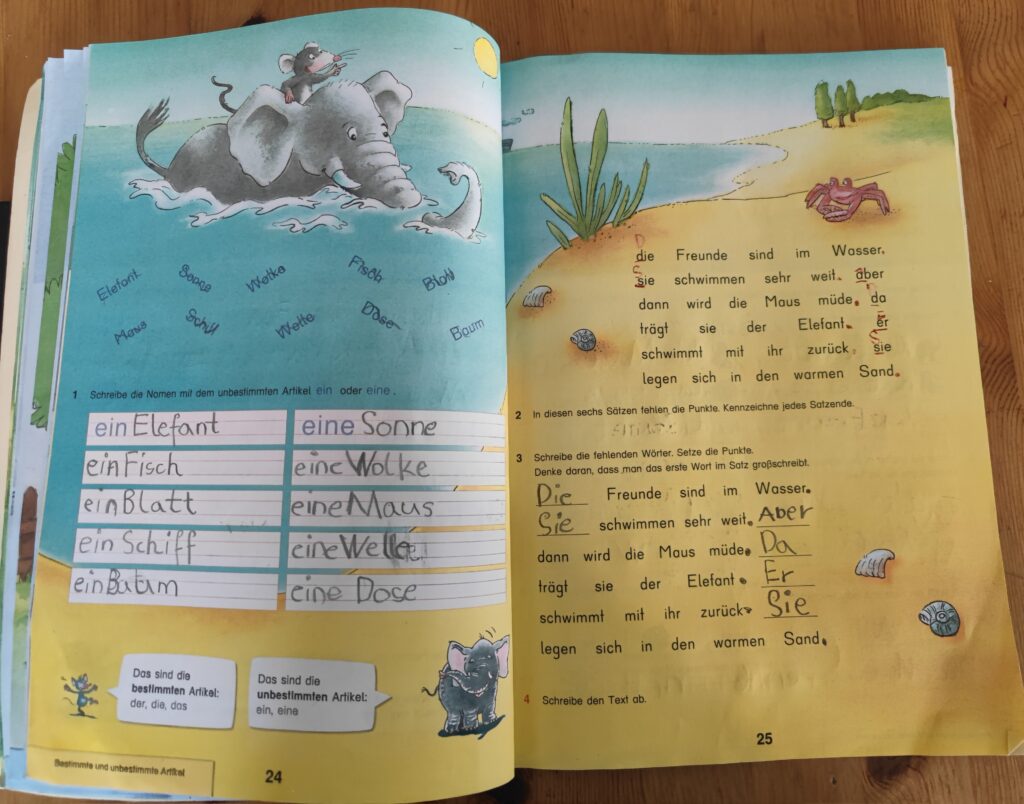 Elefant Sonne Wolke Fisch Blatt
Maus Schiff Welle Dose Baum
1 Schreibe die Nomen mit dem unbestimmten Artikel ein oder eine.
ein Elefant eine Sonne
ein Fisch eine Wolke
ein Blatt eine Maus
ein Schiff eine Welle
ein Baum eine Dose
Das sind die
bestimmten Artikel:
der, die, das
Das sind die
unbestimmten Artikel:
ein, eine
Bestimmte und unbestimmte Artikel
24
die Freunde sind im Wasser.
sie schwimmen sehr weit. aber
dann wird die Maus müde. da
trägt sie der Elefant. er
schwimmt mit ihr zurück. sie
legen sich in den warmen Sand.
2 In diesen sechs Sätzen fehlen die Punkte. Kennzeichne jedes Satzende.
3 Schreibe die fehlenden Wörter. Setze die Punkte.
Denke daran, dass man das erste Wort im Satz großschreibt.
Die Freunde sind im Wasser.
Sie schwimmen sehr weit. Aber
dann wird die Maus müde. Da
trägt sie der Elefant. Er
schwimmt mit ihr zurück. Sie
legen sich in den warmen Sand.
4 Schreibe den Text ab.
25